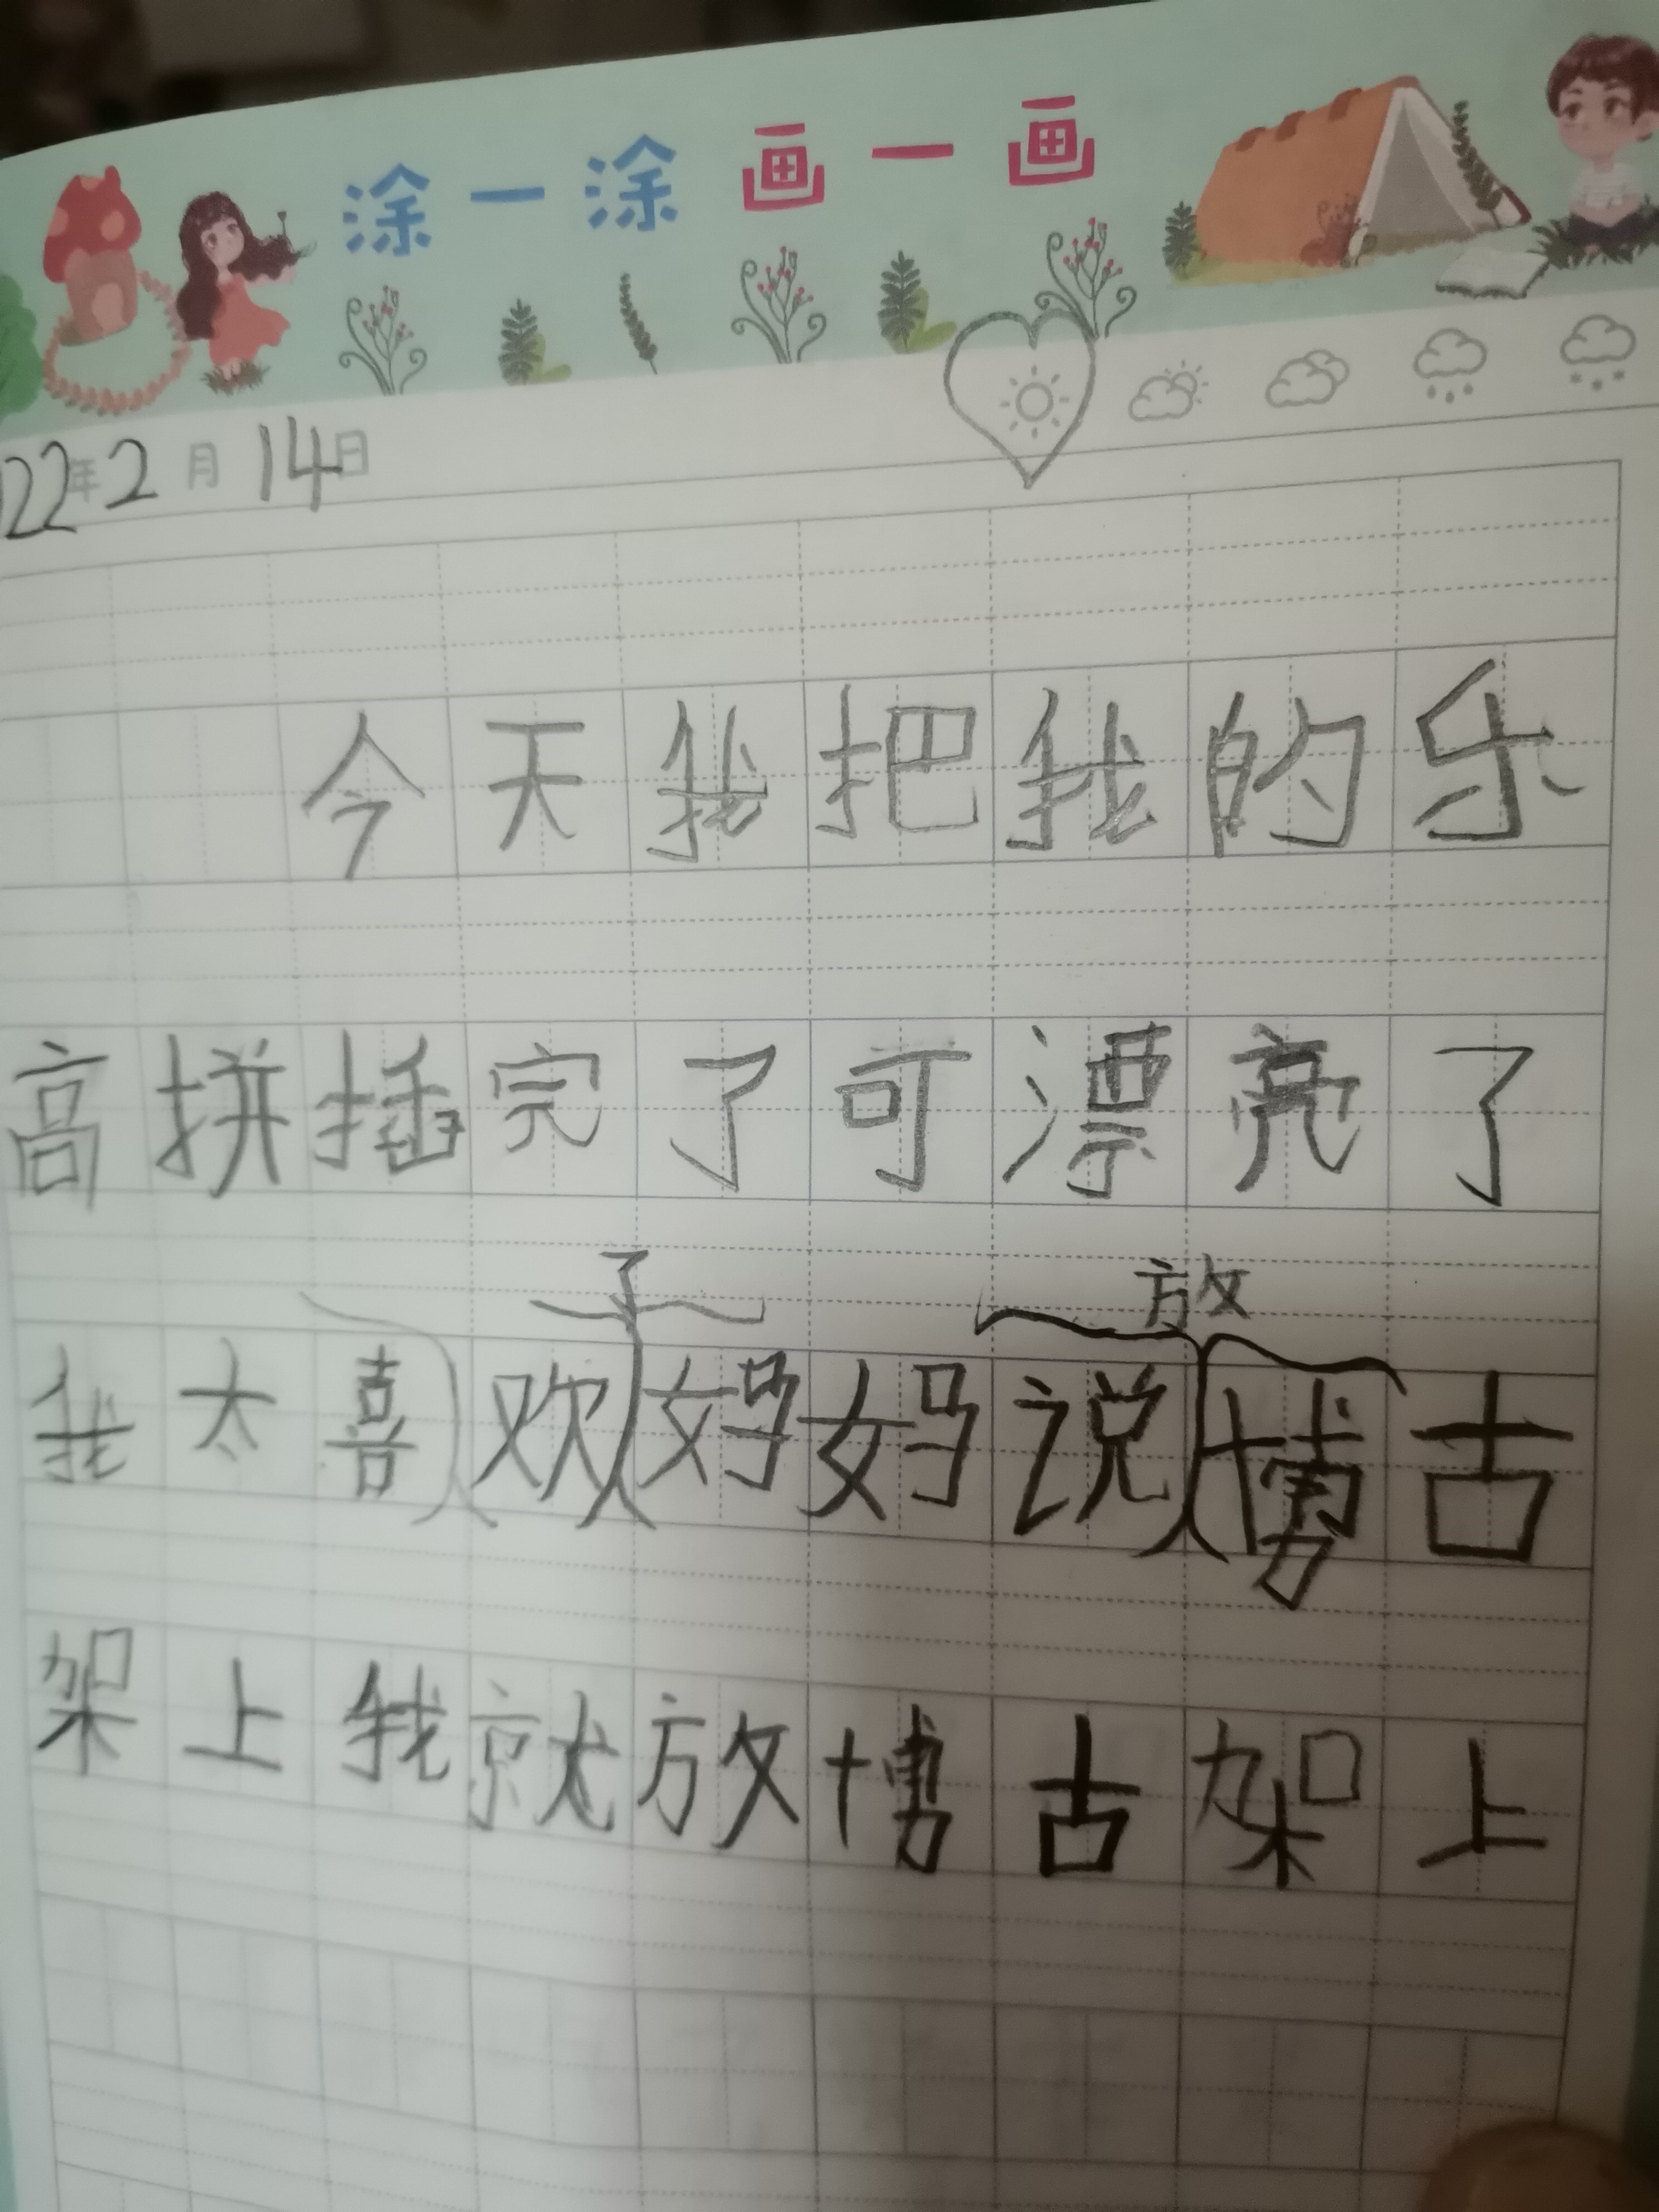 涂一涂 画一画
22年2月14日
今天我把我的乐
高拼插完了可漂亮了
了 放
我太喜欢妈妈说博古
架上我就放博古架上